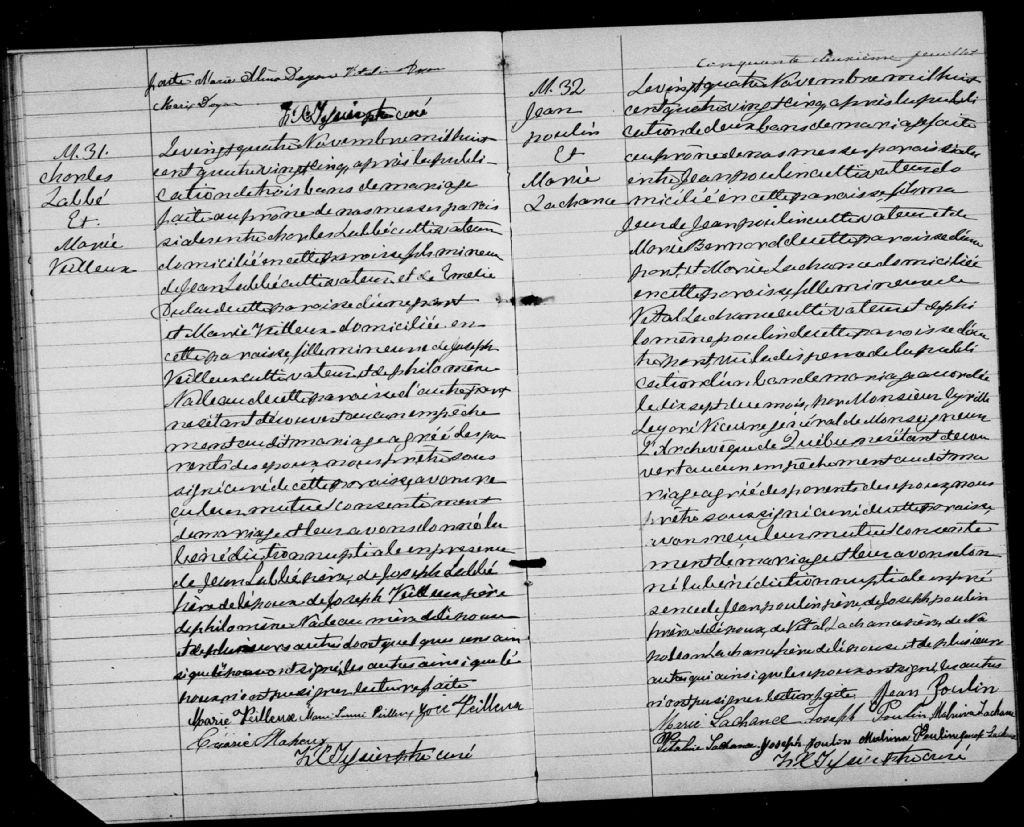 faite Marie Alma Doyon
Marie Doyon
ptre curé
M. 31.
Charles
Labbé
Et.
Marie
Veilleux
Le vingt quatre Novembre mil huit
cent quatre vingt cinq, après la publi-
cation de trois bans de mariage
faite au prône de nos messes parois
siales entre Charles Labbé cultivateur
domicilié en cette paroisse, fils mineur
de Jean Labbé cultivateur et de Emelie
de cette paroisse d'une part
et Marie Veilleux domiciliée en
cette paroisse, fille mineure de Joseph
Veilleux cultivateur et de philomène
Nadeau de cette paroisse d'autre part
ne s'étant découvert aucun empêche
ment au dit mariage agréé des pa-
rents des epoux nous prêtre sous
signé curé de cette paroisse, avons re
çu leur mutuel consentement
de mariage et leur avons donné la
bénédiction nuptiale en presence
de Jean Labbé père, de Joseph Labbé
frère de l'époux de Joseph Veilleux père
de philomène Nadeau mère de l'épouse
et de plusieurs autres dont quelques uns ain
si que l'épouse ont signé, les autres ainsi que l'é
poux n'ont pu signer lecture faite
Marie Veilleux Marie Veilleux Veilleux
Maheux
ptre curé
Cinquante deuxième feuillet
M. 32
Jean
poulin
Et
Marie
Lachance
Le vingt quatre Novembre mil huit
cent quatre vingt cinq, après la publi
cation de deux bans de mariage faite
au prône de nos messes paroissiales
entre Jean poulin cultivateur do
micilié en cette paroisse, fils ma
jeur de Jean poulin cultivateur et de
Marie Bernard de cette paroisse d'une
part et Marie Lachance domiciliée
en cette paroisse, fille mineure de
Vital Lachance cultivateur et de phi
lomène poulin de cette paroisse d'au
tre part, vu la dispense de la publi
cation d'un ban de mariage accordée
le dix sept du mois, par Monsieur Cyrille
Legaré Vicaire général de Monseigneur
L'Archevêque de Québec ne s'étant décou
vert aucun empêchement au dit ma
riage agréé des parents des epoux, nous
prêtre soussigné curé de cette paroisse,
avons reçu leur mutuel consente
ment de mariage et leur avons don
né la bénédiction nuptiale en pré
sence de Jean poulin père, de Joseph poulin
frère de l'époux, de Vital Lachance père, de Na
poléon Lachance frère de l'épouse et de plusieurs
autres qui ainsi que les epoux ont signé, les autres
n'ont pu signer lecture faite Jean Poulin
Marie Lachance Joseph Poulin Malvina Lachance
Lachance Joseph Poulin Poulin Lachance
ptre curé